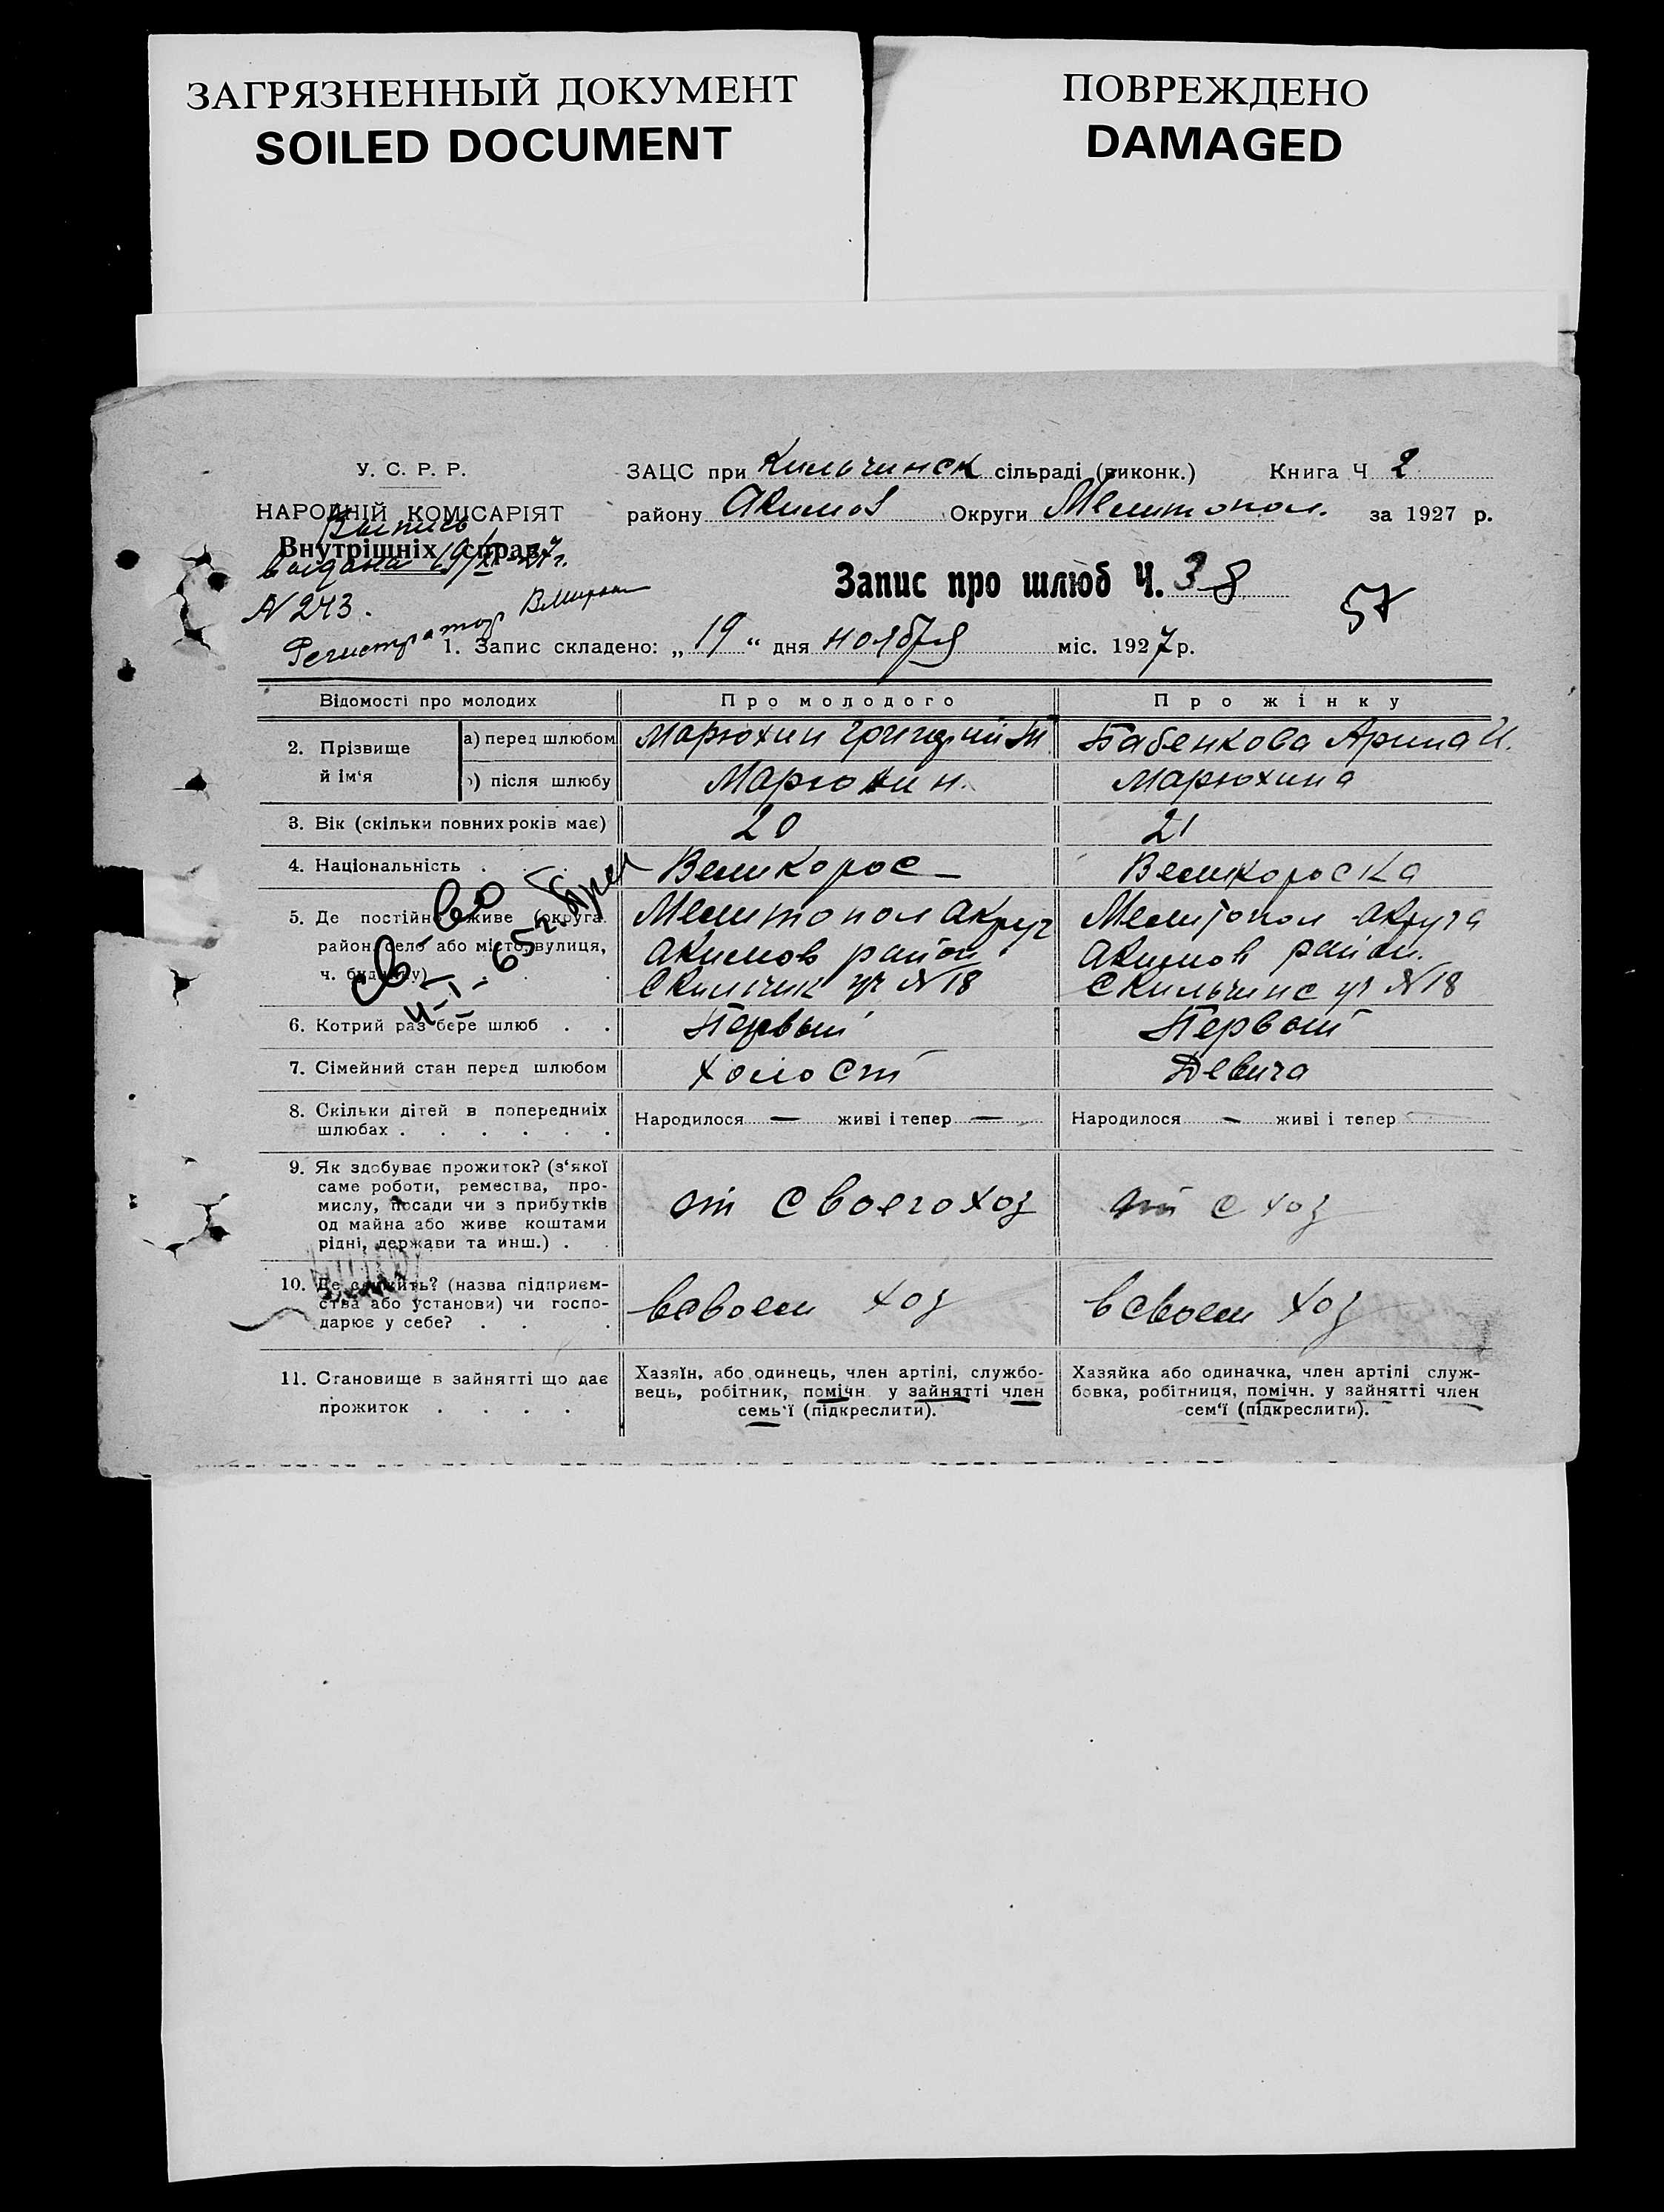 ЗАГРЯЗНЕННЫЙ ДОКУМЕНТ
SOILED DOCUMENT
ПОВРЕЖДЕНО
DAMAGED
У. С. Р. Р.
НАРОДНІЙ КОМІСАРІЯТ
Внутрішніх справ.
Выпись
выдана 19/XI-27г.
N 243.
Регистратор
ЗАЦС при Кильчинск сільраді (виконк.) Книга Ч 2
району Акимов Округи Мелитопол. за 1927 р.
Запис про шлюб Ч. 38
57
1. Запис складено: „ 19 “ дня ноября міс. 1927 р.
Відомості про молодих Про молодого Про жінку
2. Прізвище й ім‘я
а) перед шлюбом Марюхин Григорий Бабенкова Арина И.
б) після шлюбу Марюхин. Марюхина
3. Вік (скільки повних років має) 20 21
4. Національність . . . Великорос Великороска
5. Де постійно живе (округа
район, село або місто, вулиця,
ч. будинку)
Мелитопол Акруг
Акимов район
С Кильчик уч N 18
Мелитопол Акруга
Акимов район.
С Кильчинс уч N 18
св-во
6. Котрий раз бере шлюб . . Первый Первый
7. Сімейний стан перед шлюбом Холост Девица
8. Скільки дітей в попередниіх
шлюбах . . . . . .
Народилося — живі і тепер —
Народилося — живі і тепер
9. Як здобуває прожиток? (з‘якої
саме роботи, ремества, про-
мислу, посади чи з прибутків
од майна або живе коштами
рідні, держави та инш.) . .
от своего хоз
от с хоз
10. Де служить? (назва підприєм-
ства або установи) чи госпо-
дарює у себе? . . .
в своем хоз
в своем хоз
11. Становище в зайнятті що дає
прожиток . . . .
Хазяїн, або одинець, член артілі, службо-
вець, робітник, помічн. у зайнятті член
семь‘ї (підкреслити).
Хазяйка або одиначка, член артілі служ-
бовка, робітниця, помічн. у зайнятті член
сем‘ї (підкреслити).